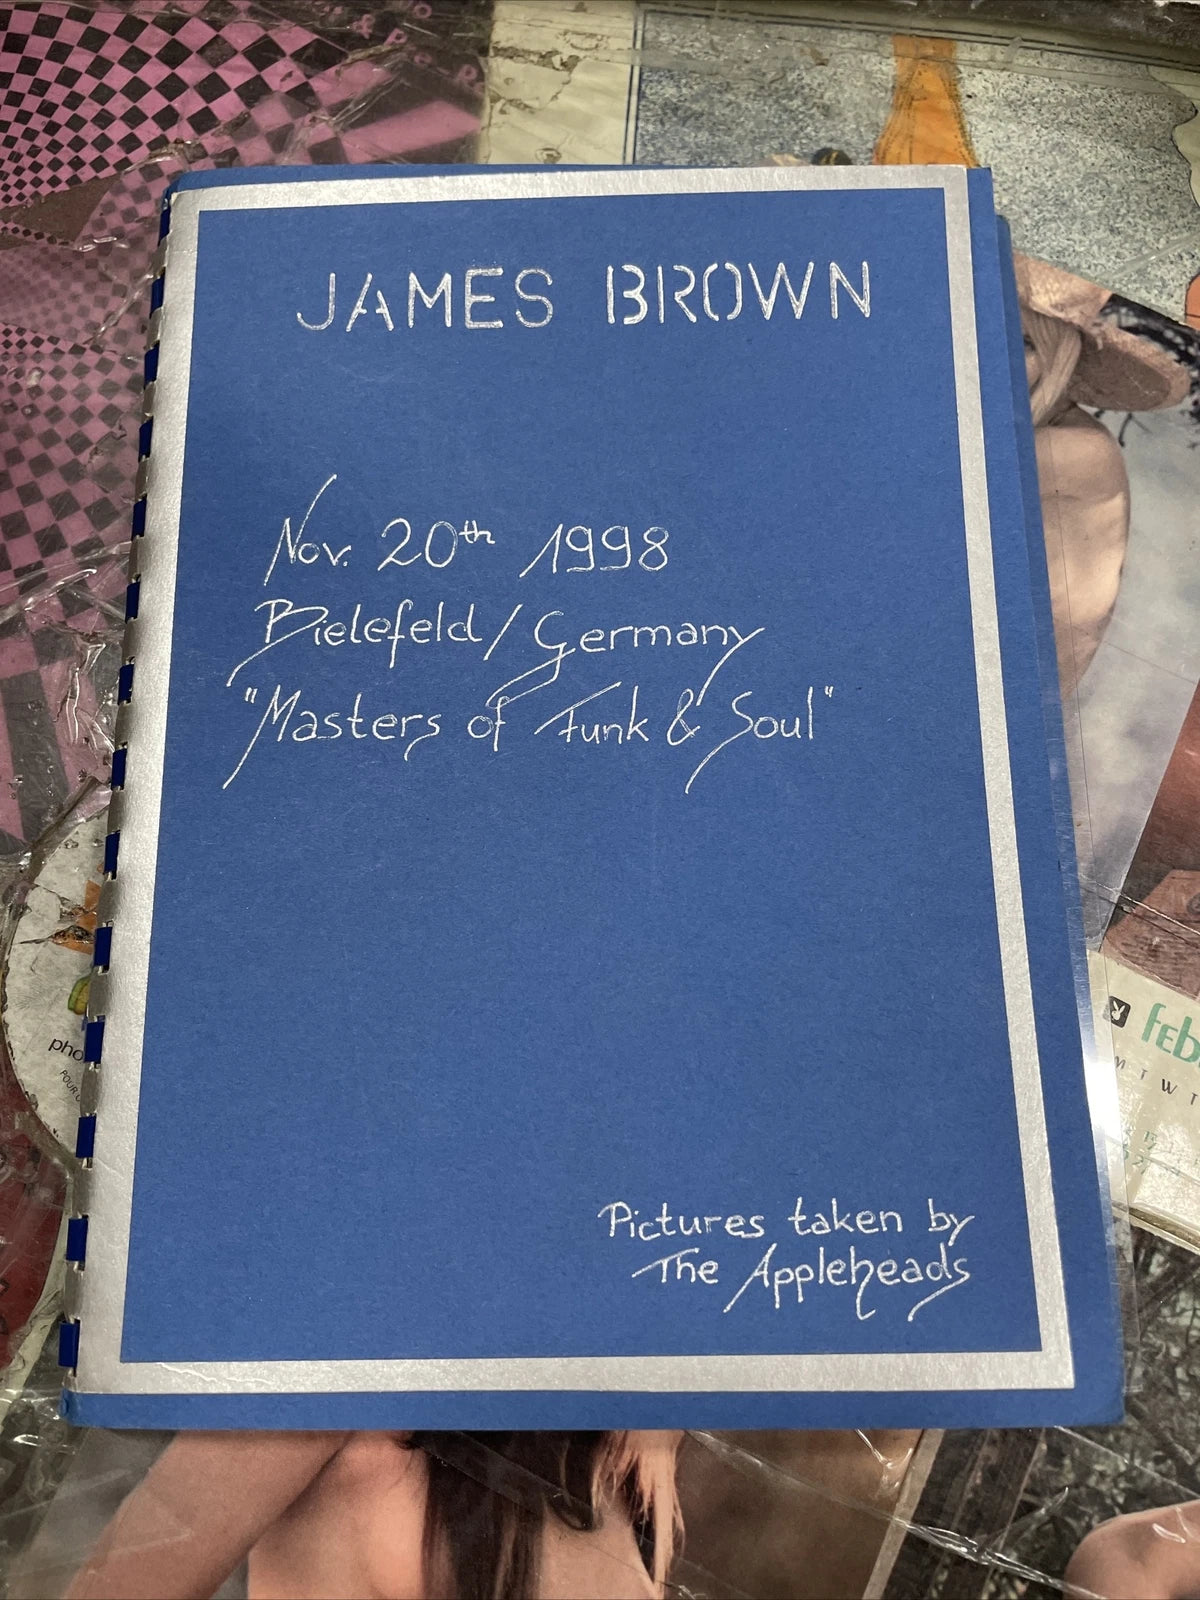 JAMES BROWN
Nov. 20th 1998
Bielefeld / Germany
"Masters of Funk & Soul"
Pictures taken by
The Appleheads
pho
POUR
feb
M T W T